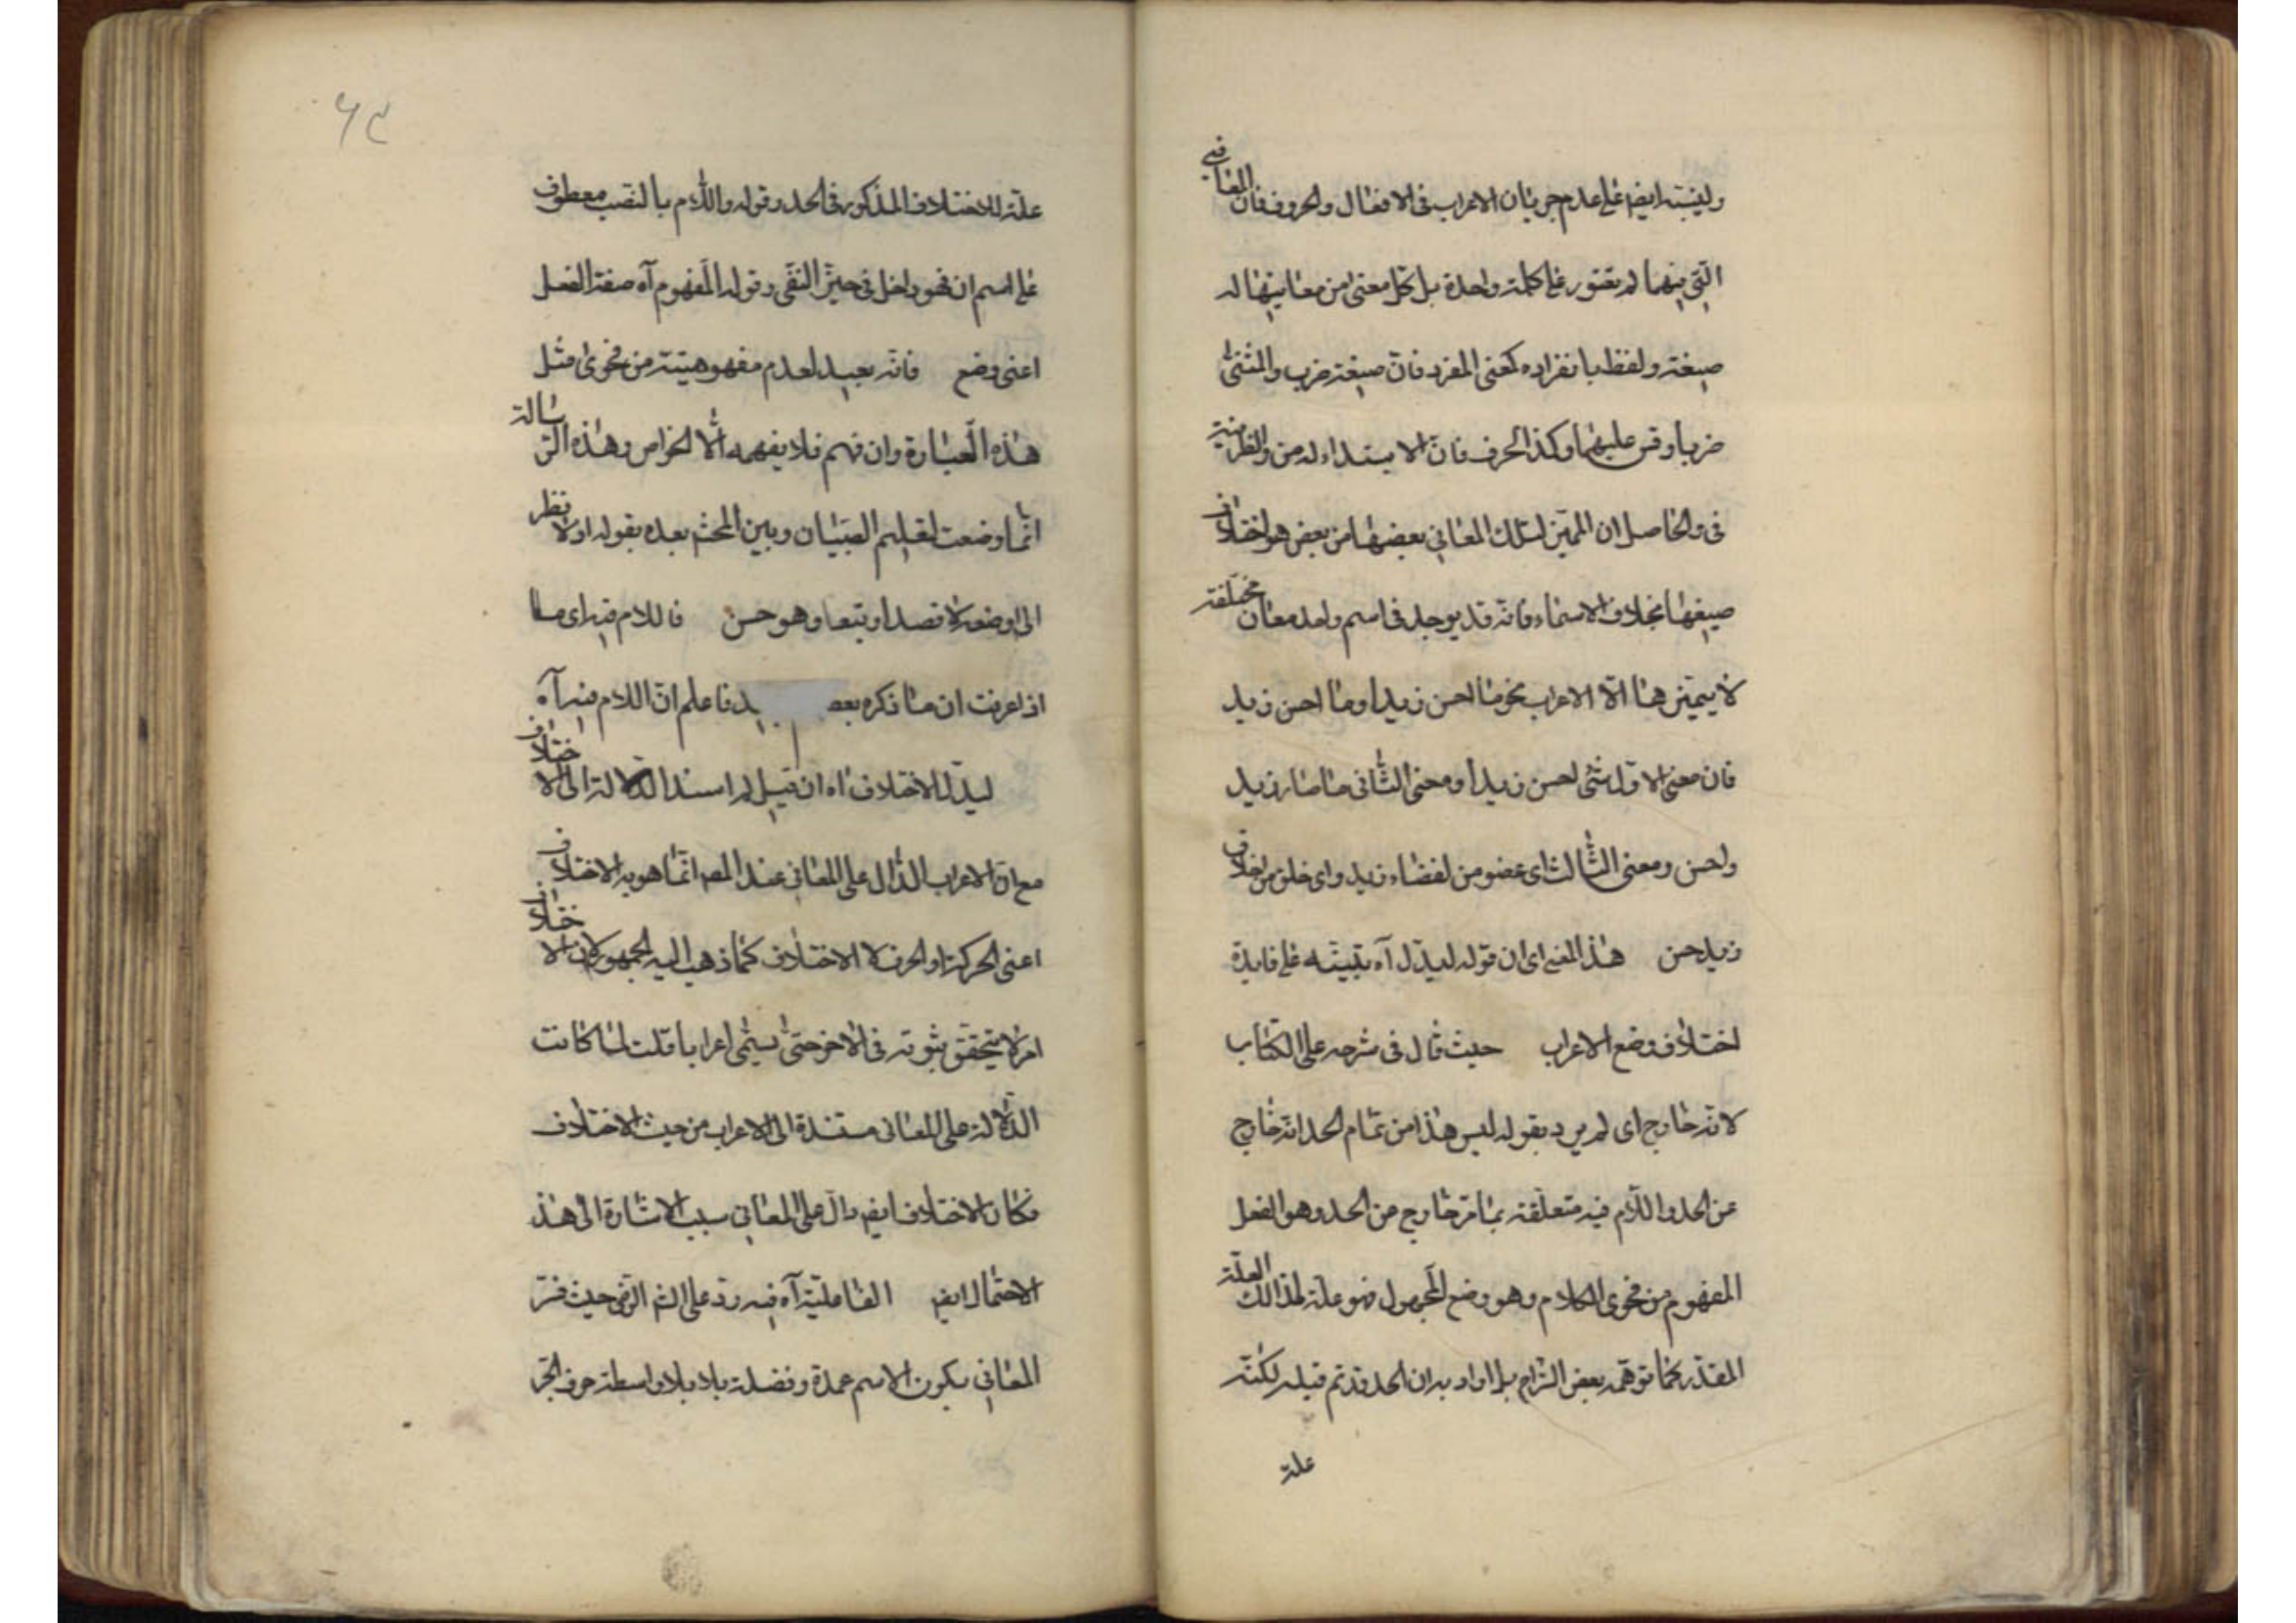 ولينبه ايضا على عدم جريان الاعراب فى الافعال والحروف فان المعانى
التى فيهما لم تعتور على كلمة واحدة بل لكل معنى من معانيها له
صيغة ولفظ بانفراده كمعنى المفرد فان صيغته ضرب والمثنى
ضربا وقس عليهما وكذا الحرف فان الابتداء له من والظرفية
فى والحاصل ان المميز لتلك المعانى بعضها من بعض هو اختلاف
صيغها بخلاف الاسماء فانه قد يوجد فى اسم واحد معان مختلفة
لا يتميز هنا الا الاعراب نحو ما احسن زيدا وما احسن زيد
فان معنى الاول شئ احسن زيدا ومعنى الثانى ما صار زيد
واحسن ومعنى الثالث اى عضو من اعضاء زيد واى خلق من اخلاق
زيد حسن هذا المعنى اى ان قوله ليدل آه تنبيه على فايدة
اختلاف وضع الاعراب حيث قال فى شرحه على الكتاب
لانه خارج اى لم يرد بقوله ليس هذا من تمام الحد انه خارج
عن الحد واللام فيه متعلقة بما مر خارج من الحد وهو الفعل
المفهوم من فحوى الكلام وهو وضع المجهول فهو علة لهذا لك العلة
المقدر كما توهمه بعض الشراح بل اراد به ان الحد قد تم قبله لكنه
علة
٦٤
علة للاختلاف المذكور فى الحد وقوله واللام بالنصب معطوف
على اسم ان فهو داخل فى حيز النفى وقوله المفهوم آه صفة الفعل
اعنى وضع فانه بعيد لعدم مفهوميته من فحوى مثل
هذه العبارة وان فهم فلا يفهمه الا الخواص وهذه الرسالة
انما وضعت لتعليم الصبيان وبين المحشى بعده بقوله اولا نظر
الى وضعه لا قصدا وتبعا وهو حسن فاللام فيه اى ما
اذا عرفت ان ما ذكره بعيد فاعلم ان اللام فيه آه
ليدل الاختلاف آه ان قيل لم اسند الدلالة الى الاختلاف
مع ان الاعراب الدال على المعانى عند المص انما هو به الاختلاف
اعنى الحركة او الحرف لا الاختلاف كما ذهب اليه الجمهور لان الاختلاف
امر لا يتحقق ثبوته فى الاخر حتى يسمى اعرابا قلت لما كانت
الدلالة على المعانى مستندة الى الاعراب من حيث الاختلاف
فكان الاختلاف ايضا دال على المعانى سبب الاشارة الى هذ
الاحتمال ايضا الفاعلية آه فيه رد على الشم الرضى حيث فسر
المعانى بكون الاسم عمدة وفضلة بلا واسطة حرف الجر